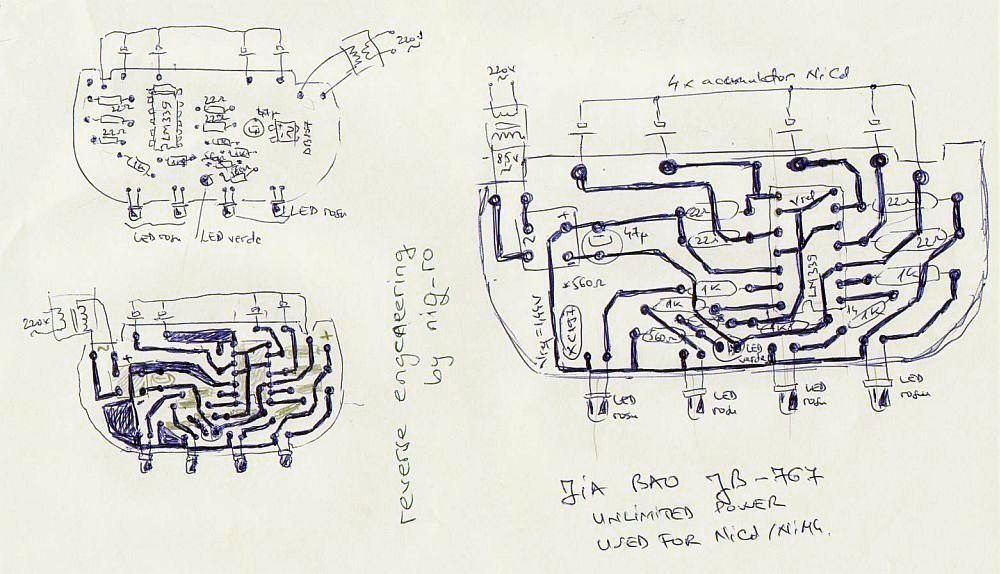 220V
~
22Ω
22Ω
22Ω
LM339
22Ω
22Ω
47μ
DB107
1K
LED rosu
LED verde
LED rosu
220V
~
+
reverse engeneering
by niq-ro
220V
~
8,5V
4x acumulator NiCd
Vref
22Ω
22Ω
22Ω
22Ω
47μ
+
2
LM339
*560Ω
1K
1K
1K
1K
560Ω
Vref=1,44V
LED
verde
LED
rosu
LED
rosu
LED
rosu
LED
rosu
JiA BAO JB-767
UNLIMITED POWER
USED FOR NiCd/NiMH.